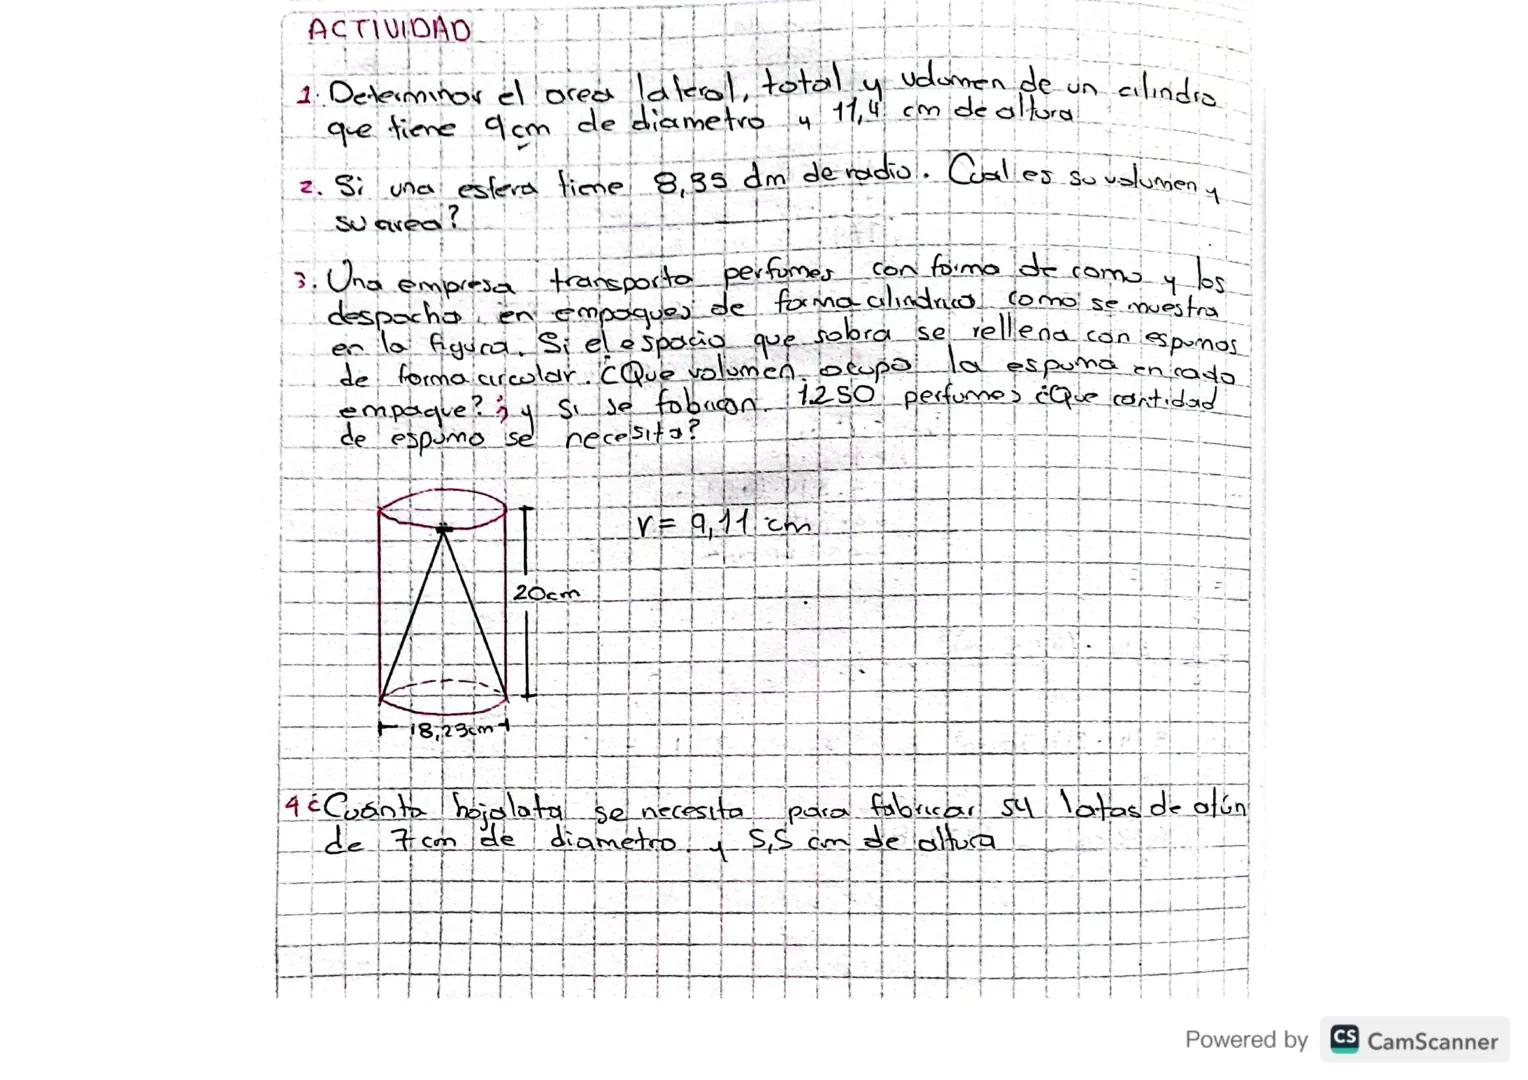 ACTIVIDAD
1. Determinar el area lateral, total y volumen de un cilindro
que tiene 9cm de diametro y 11,4 cm de altura
2. Si una esfera tiene 8,35 dm de radio. Cual es su volumen y
su area?
3. Una empresa transporta perfumes con forma de como y los
despacha en empaques de forma cilindrica como se muestra
en la figura. Si el espacio que sobra se rellena con espumas
de forma circular. ¿Que volumen ocupa la espuma en cada
empaque? ; y si se fabrican 1.250 perfumes ¿Que cantidad
de espuma se necesita?
r = 9,11 cm
20cm
18,23cm
4 ¿Cuánta hojalata se necesita para fabricar 54 latas de atún
de 7 cm de diametro y 5,5 cm de altura
Powered by CS CamScanner